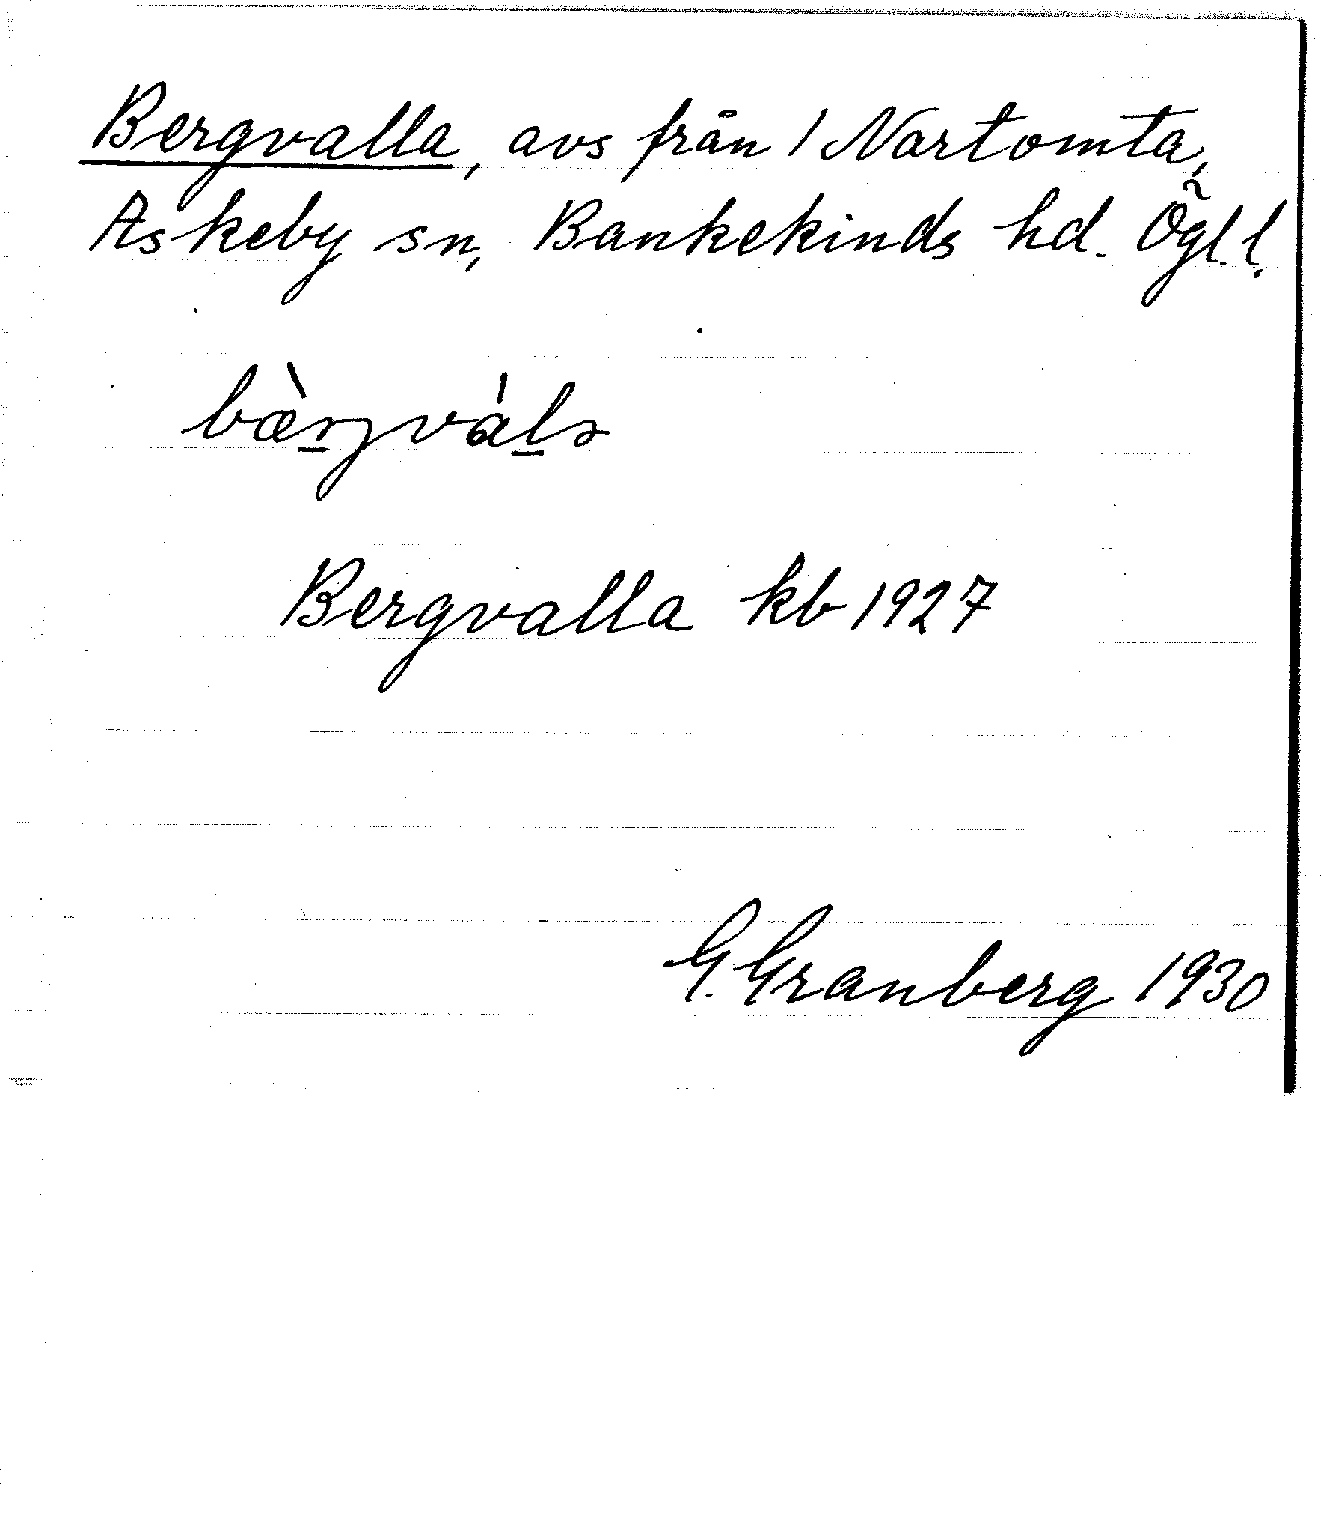 Bergvalla, avs från 1 Nartomta,
Askeby sn, Bankekinds hd. Ögl. l.
bæ̀r̲jvál̲a
Bergvalla kb 1927
G. Granberg 1930